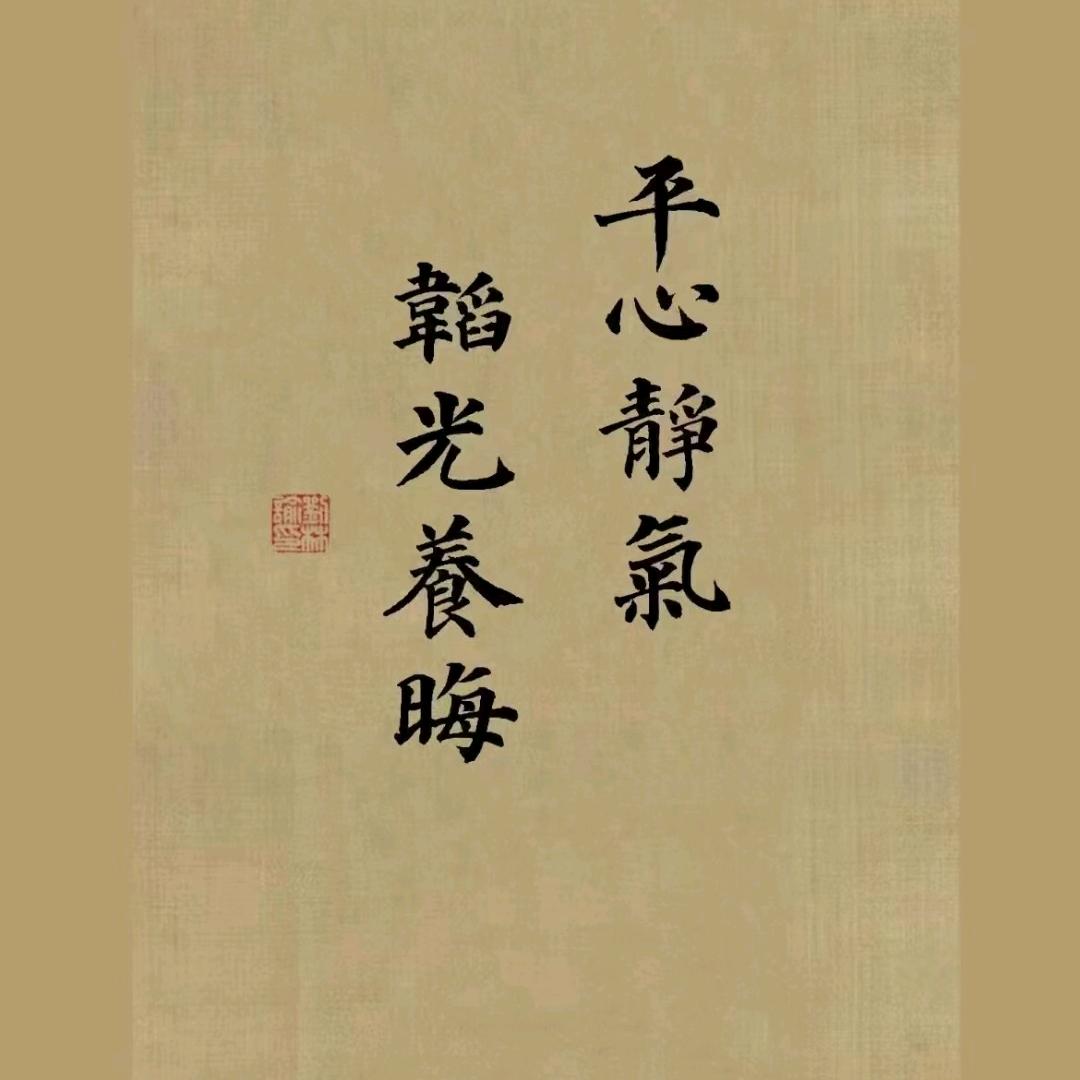 平心靜氣
韜光養晦